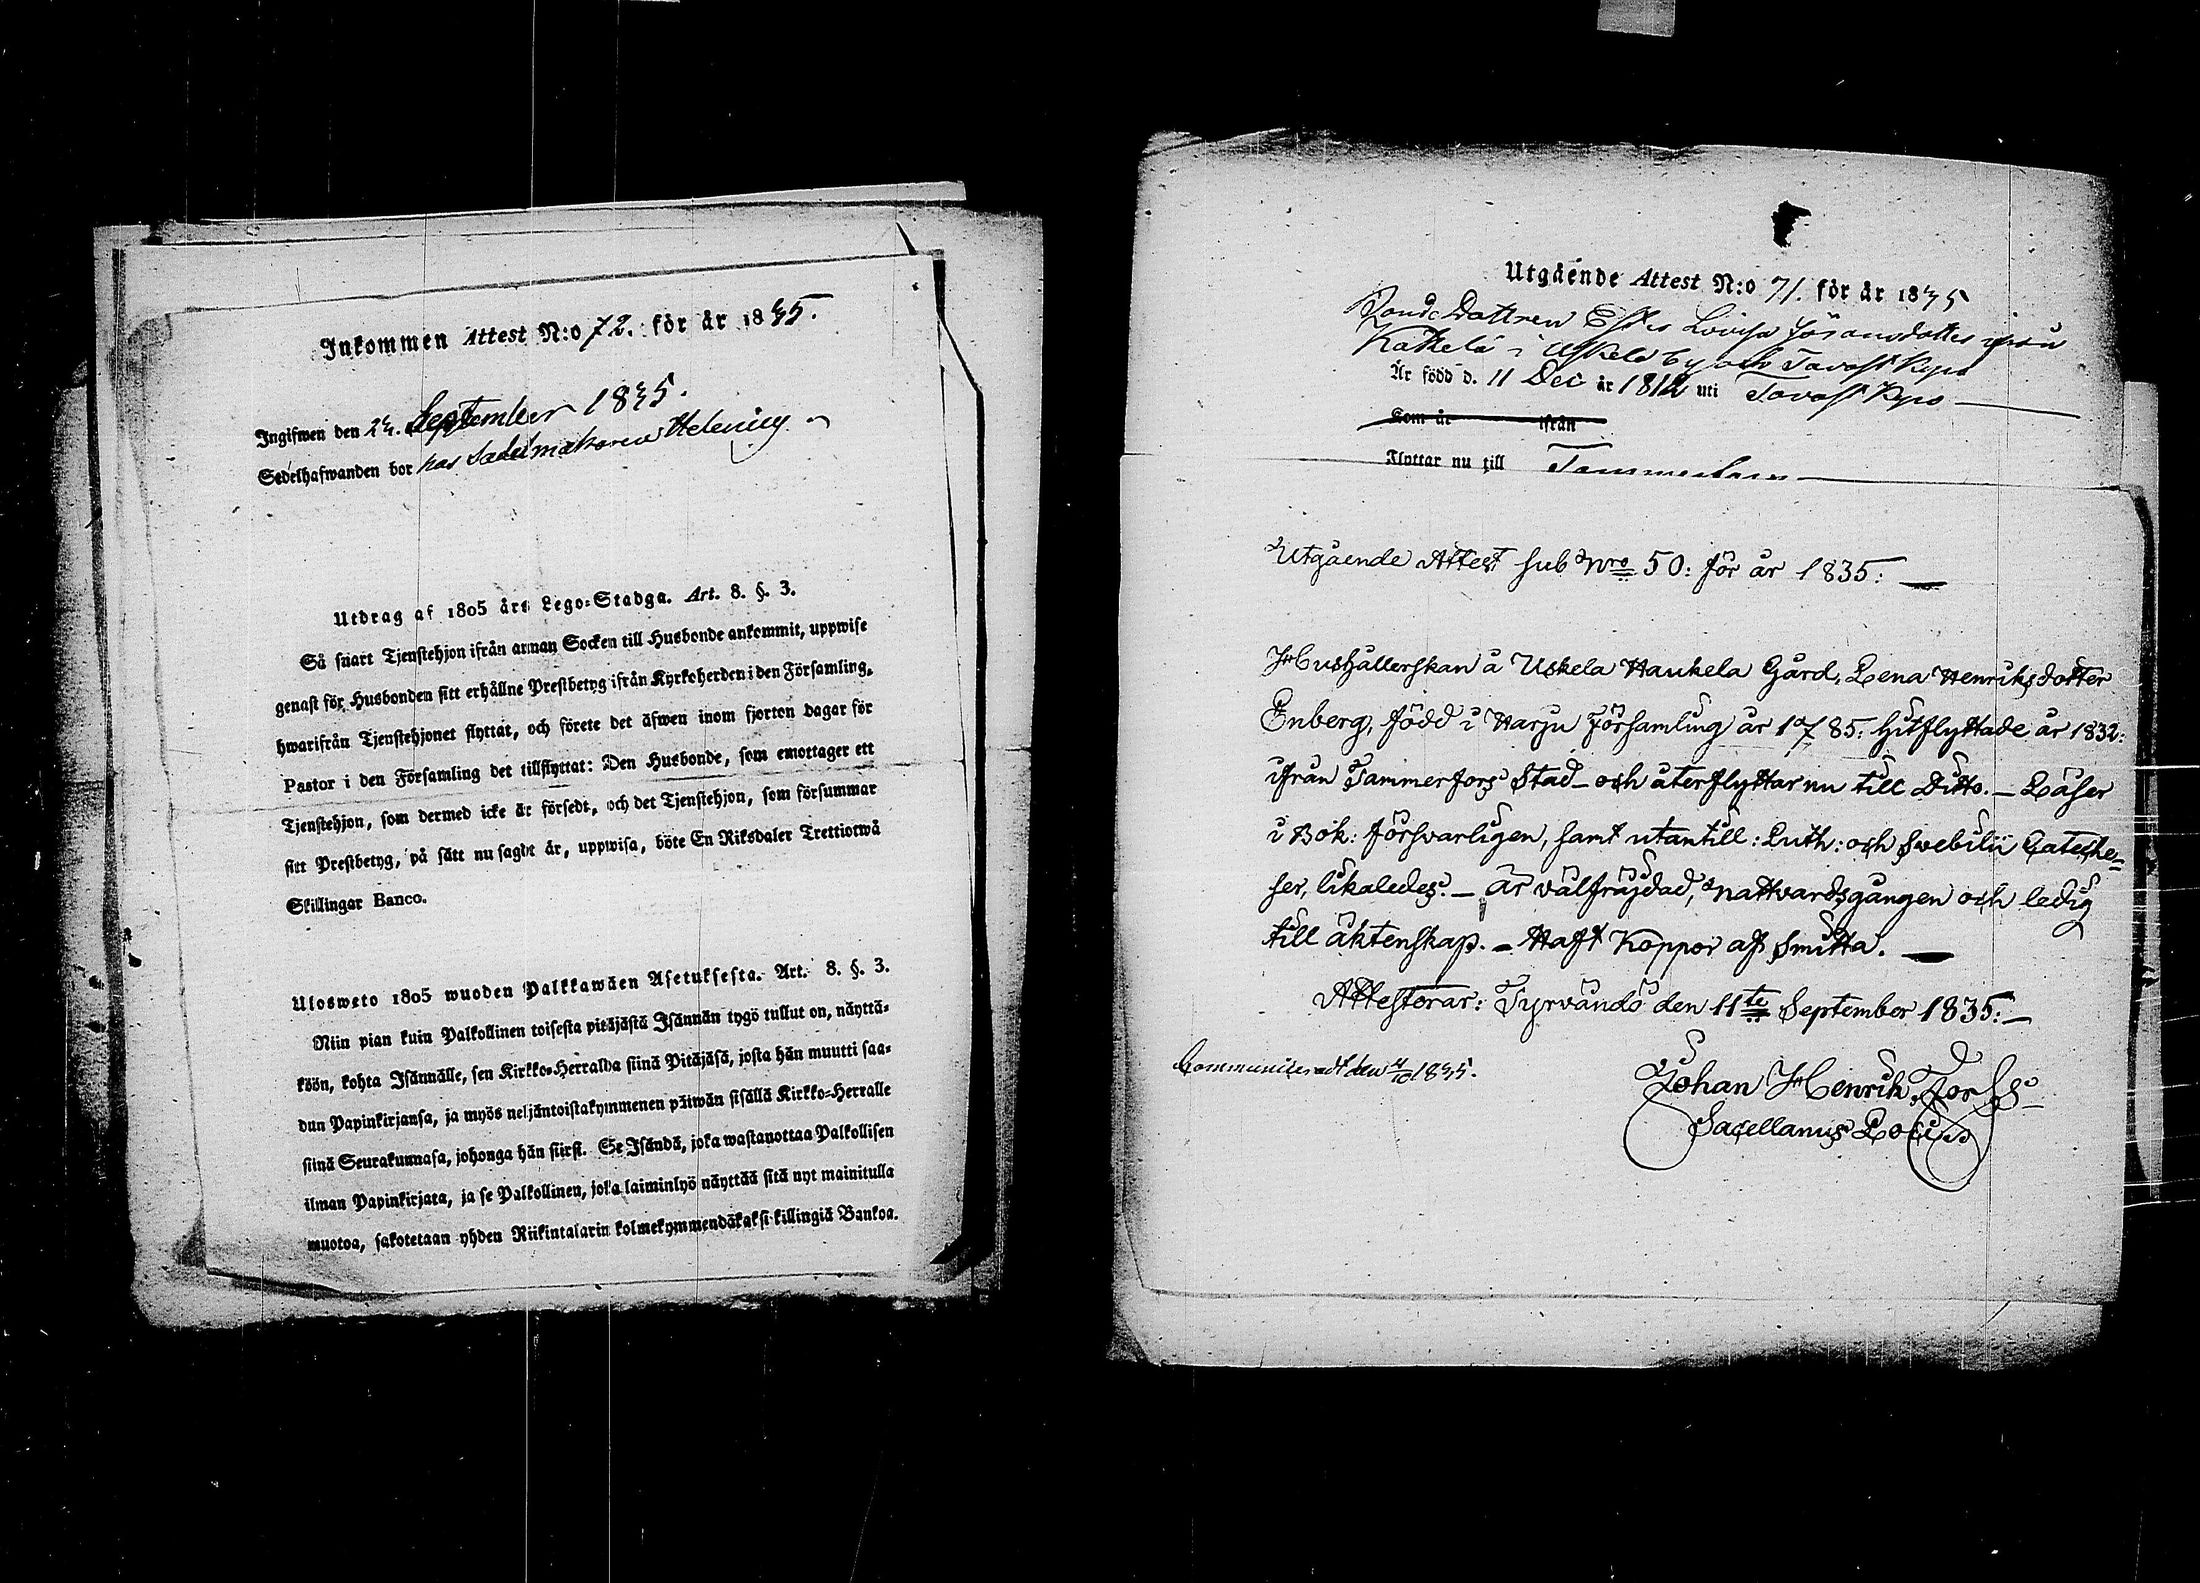 Inkommen Attest N:o 72. för år 1835.
Ingifwen den 24. September 1835.
Sedelhafwanden bor hos Sadelmakaren Helenius
Utdrag af 1805 års Lego-Stadga. Art. 8. §. 3.
Så snart Tjenstehjon ifrån annan Socken till Husbonde ankommit, uppwise
genast för Husbonden sitt erhållne Prestbetyg ifrån Kyrkoherden i den Församling,
hwarifrån Tjenstehjonet flyttat, och förete det äfwen inom fjorton dagar för
Pastor i den Församling det tillflyttat: Den Husbonde, som emottager ett
Tjenstehjon, som dermed icke är försedt, och det Tjenstehjon, som försummar
sitt Prestbetyg, på sätt nu sagdt är, uppwisa, böte En Riksdaler Trettiotwå
Skillingar Banco.
Ulosweto 1805 wuoden Palkkawäen Asetuksesta. Art. 8. §. 3.
Niin pian kuin Palkollinen toisesta pitäjästä Isännän tygö tullut on, näyttä-
köön, kohta Isännälle, sen Kirkko-Herralda siinä Pitäjäsä, josta hän muutti saa-
dun Papinkirjansa, ja myös neljäntoistakymmenen päiwän sisällä Kirkko-Herralle
siinä Seurakunnasa, johonga hän siirsi. Se Isändä, joka wastanottaa Palkollisen
ilman Papinkirjata, ja se Palkollinen, joka laiminlyö näyttää sitä nyt mainitulla
muotoa, sakotetaan yhden Riikintalarin kolmekymmendäkaksi killingiä Bankoa.
Utgående Attest N:o 71. för år 1835
Bonde Dottren Lovisa ifrån
i Uskela by och Tavast Kyro
Är född d. 11 Dec år 1812 uti Tavast Kyro
Kom år ifrån
Flyttar nu till Tammerfors
Utgående Attest sub Nro 50: för år 1835:
Hushållerskan å Uskela Haukela Gård, Lena Henriksdotter
Enberg, född i Harju Församling år 1785: hitflyttade år 1832:
ifrån Tammerfors Stad - och återflyttar nu till Ditto. - Läser
i Bok: försvarligen, samt utantill: Luth: och Swebilii Cateche-
ser, likaledes. - är välfräjdad, nattvardsgången och ledig
till äktenskap. - Haft Koppor af Smitta.
Attesterar: Tyrvändö den 11te September 1835:
Communicerat den 4/10 1835.
Johan Henrik Forss
Sacellanus Loci